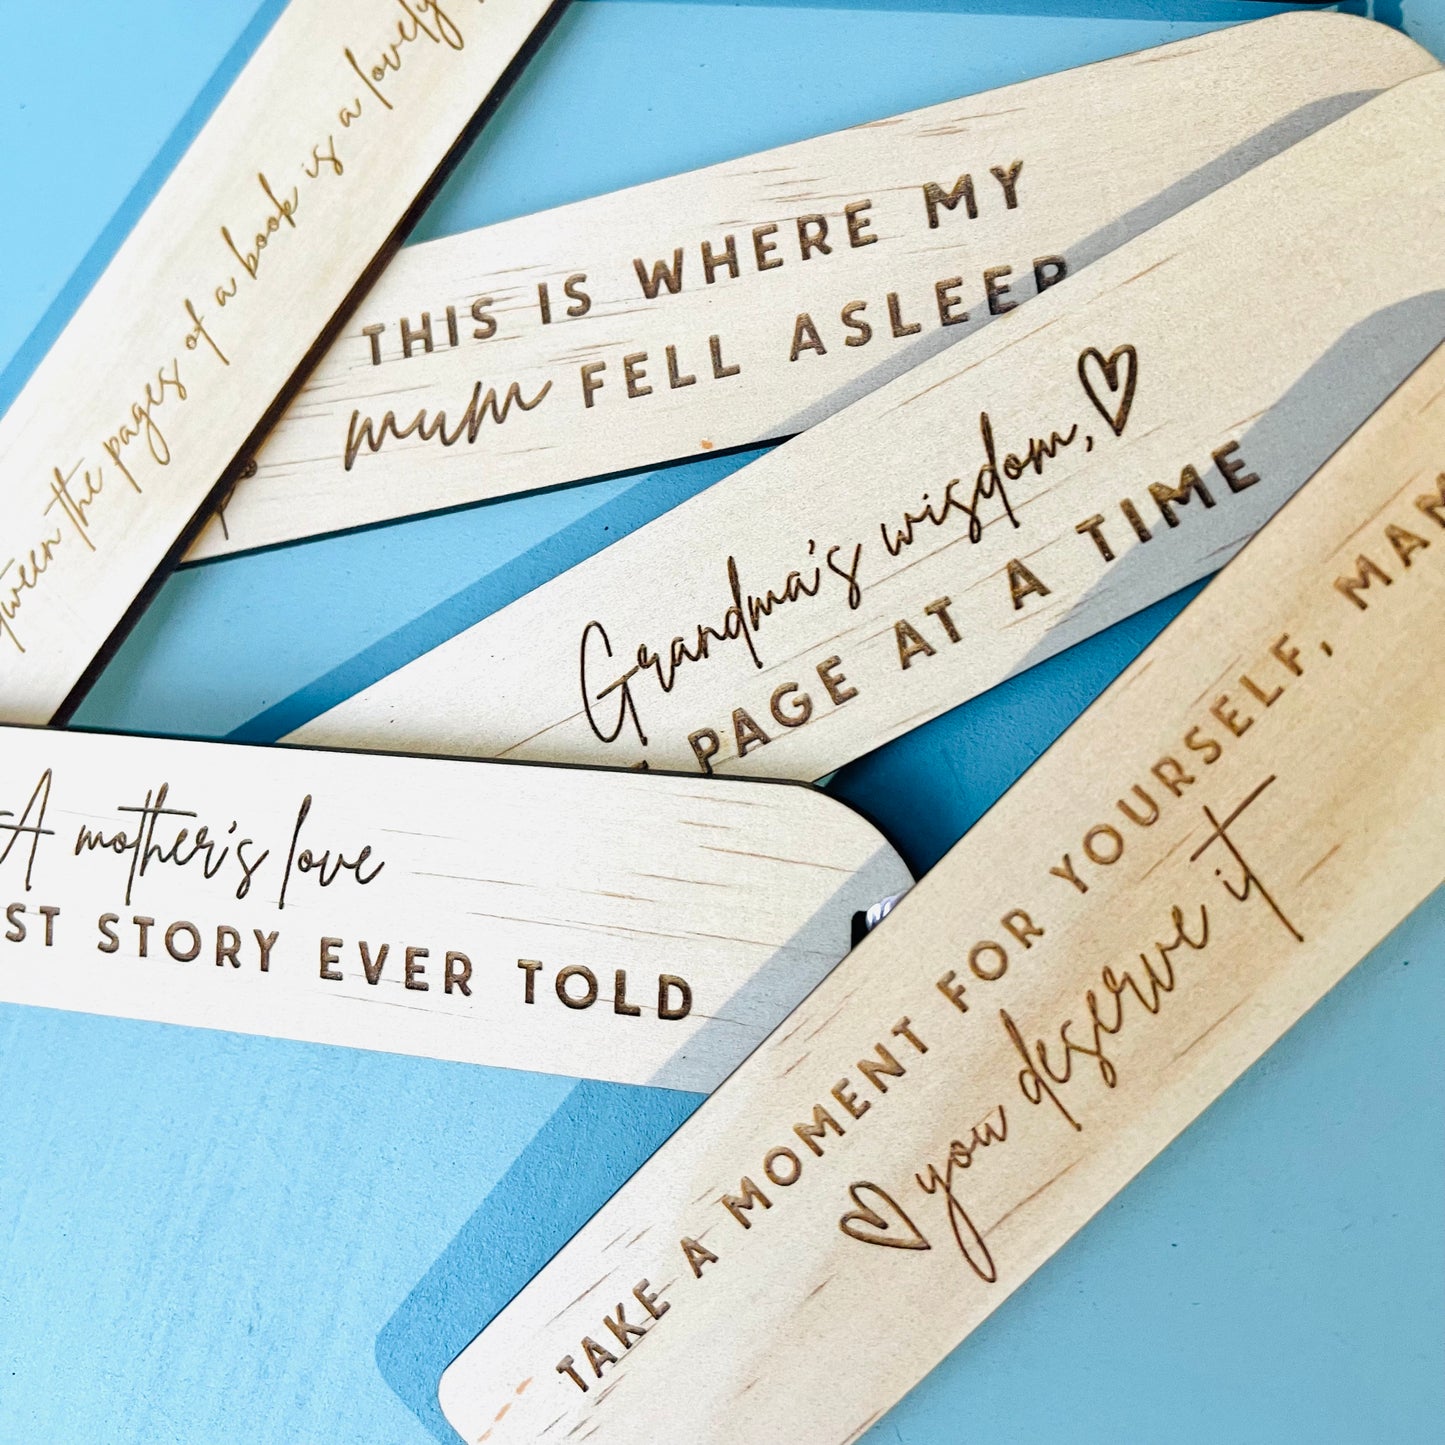 the pages of a book is a lovely
THIS IS WHERE MY
mum FELL ASLEEP
Grandma's wisdom,
PAGE AT A TIME
A mother's love
STORY EVER TOLD
TAKE A MOMENT FOR YOURSELF,
you deserve it